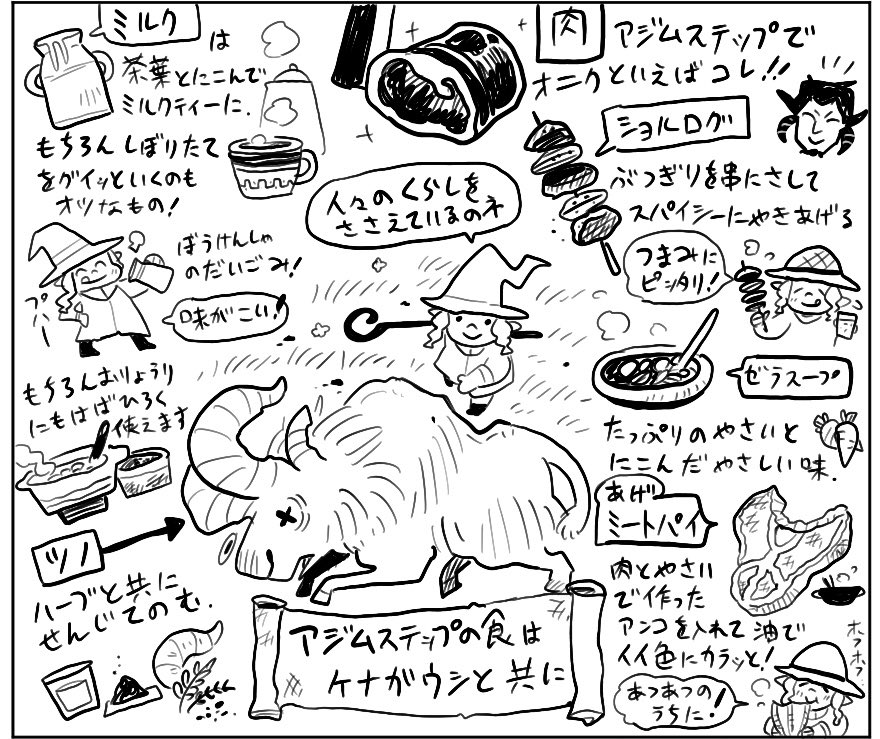 ミルク
は
茶葉とにこんで
ミルクティーに.
もちろんしぼりたて
をグイッといくのも
オツなもの!
ぼうけんしゃ
のだいごみ!
プハー
味がこい!
もちろんおりょうり
にもはばひろく
使えます
ツノ
ハーブと共に
せんじてのむ.
人々のくらしを
ささえているのネ
肉
アジムステップで
オニクといえばコレ!!
ショルログ
ぶつぎりを串にさして
スパイシーにやきあげる
つまみに
ピッタリ!
ゼラスープ
たっぷりのやさいと
にこんだやさしい味.
あげ
ミートパイ
肉とやさい
で作った
アンコを入れて油で
イイ色にカラッと!
ホフホフ
あつあつの
うちに!
アジムステップの食は
ケナガウシと共に